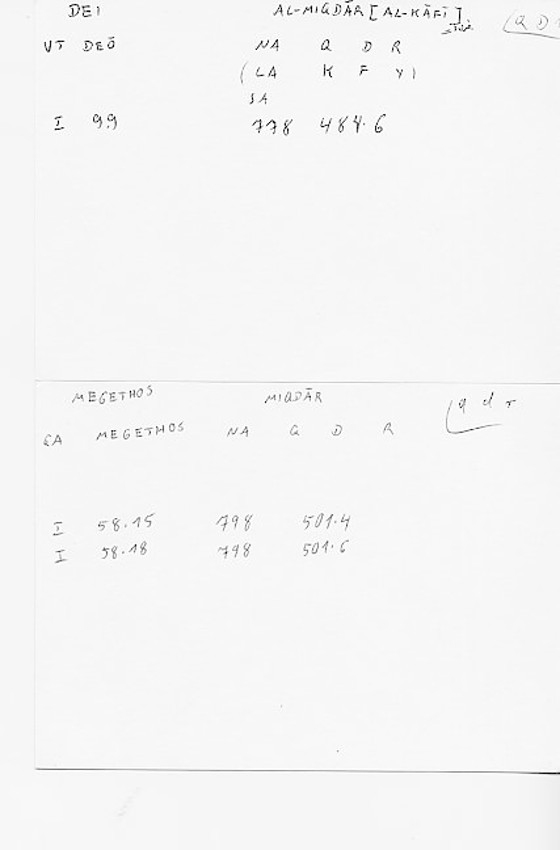 DEI AL-MIQDĀR [AL-KĀFĪ]
VT DEŌ NA Q D R
(LA K F Y)
SA
I 9.9 778 484.6
MEGETHOS MIQDĀR q d r
GA MEGETHOS NA Q D R
I 58.15 798 501.4
I 58.18 798 501.6